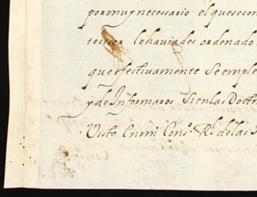 por muy necesario el que se con
lo haviades ordenado
que efectivamente se emple
y de Informaros si en las Doctr
Visto en mi Cons.º R.l de las